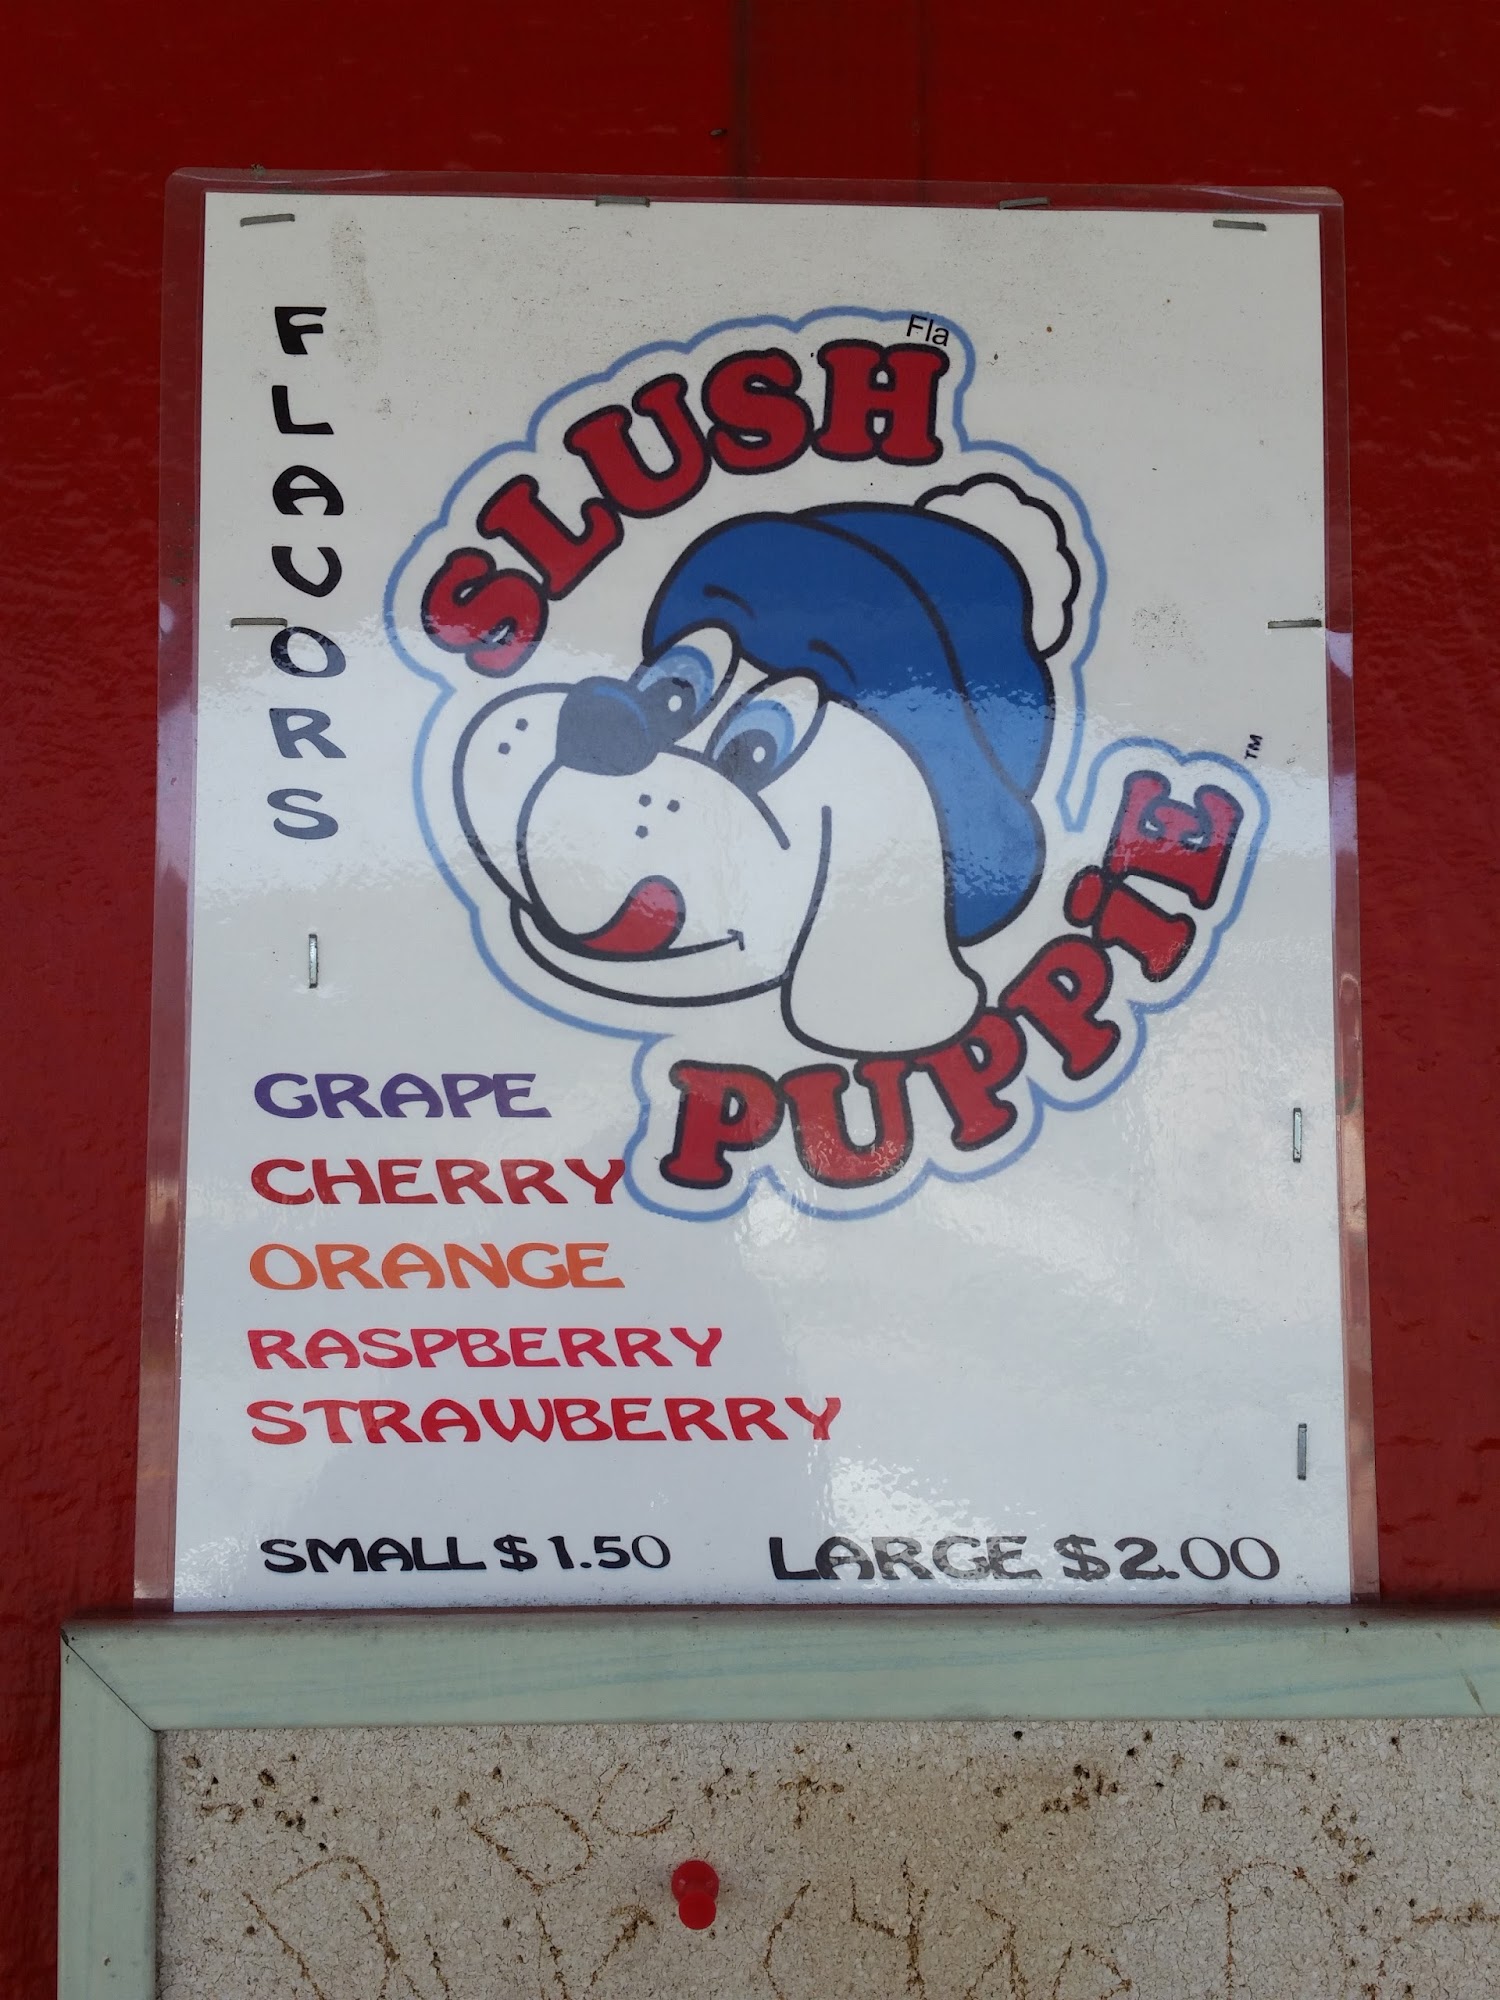 FLAVORS
Fla
SLUSH
PUPPiE™
GRAPE
CHERRY
ORANGE
RASPBERRY
STRAWBERRY
SMALL $1.50 LARGE $2.00